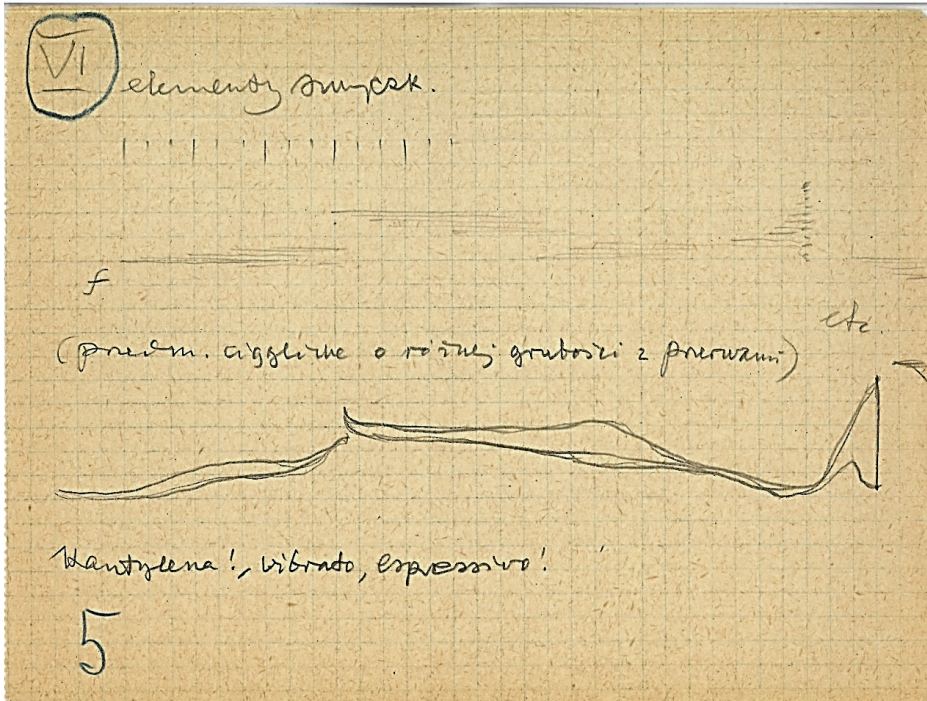 VI
elementy smyczk.
f
etc.
(przedm. ciągliwe o różnej grubości z przerwami)
Kantylena!, vibrato, espressivo!
5